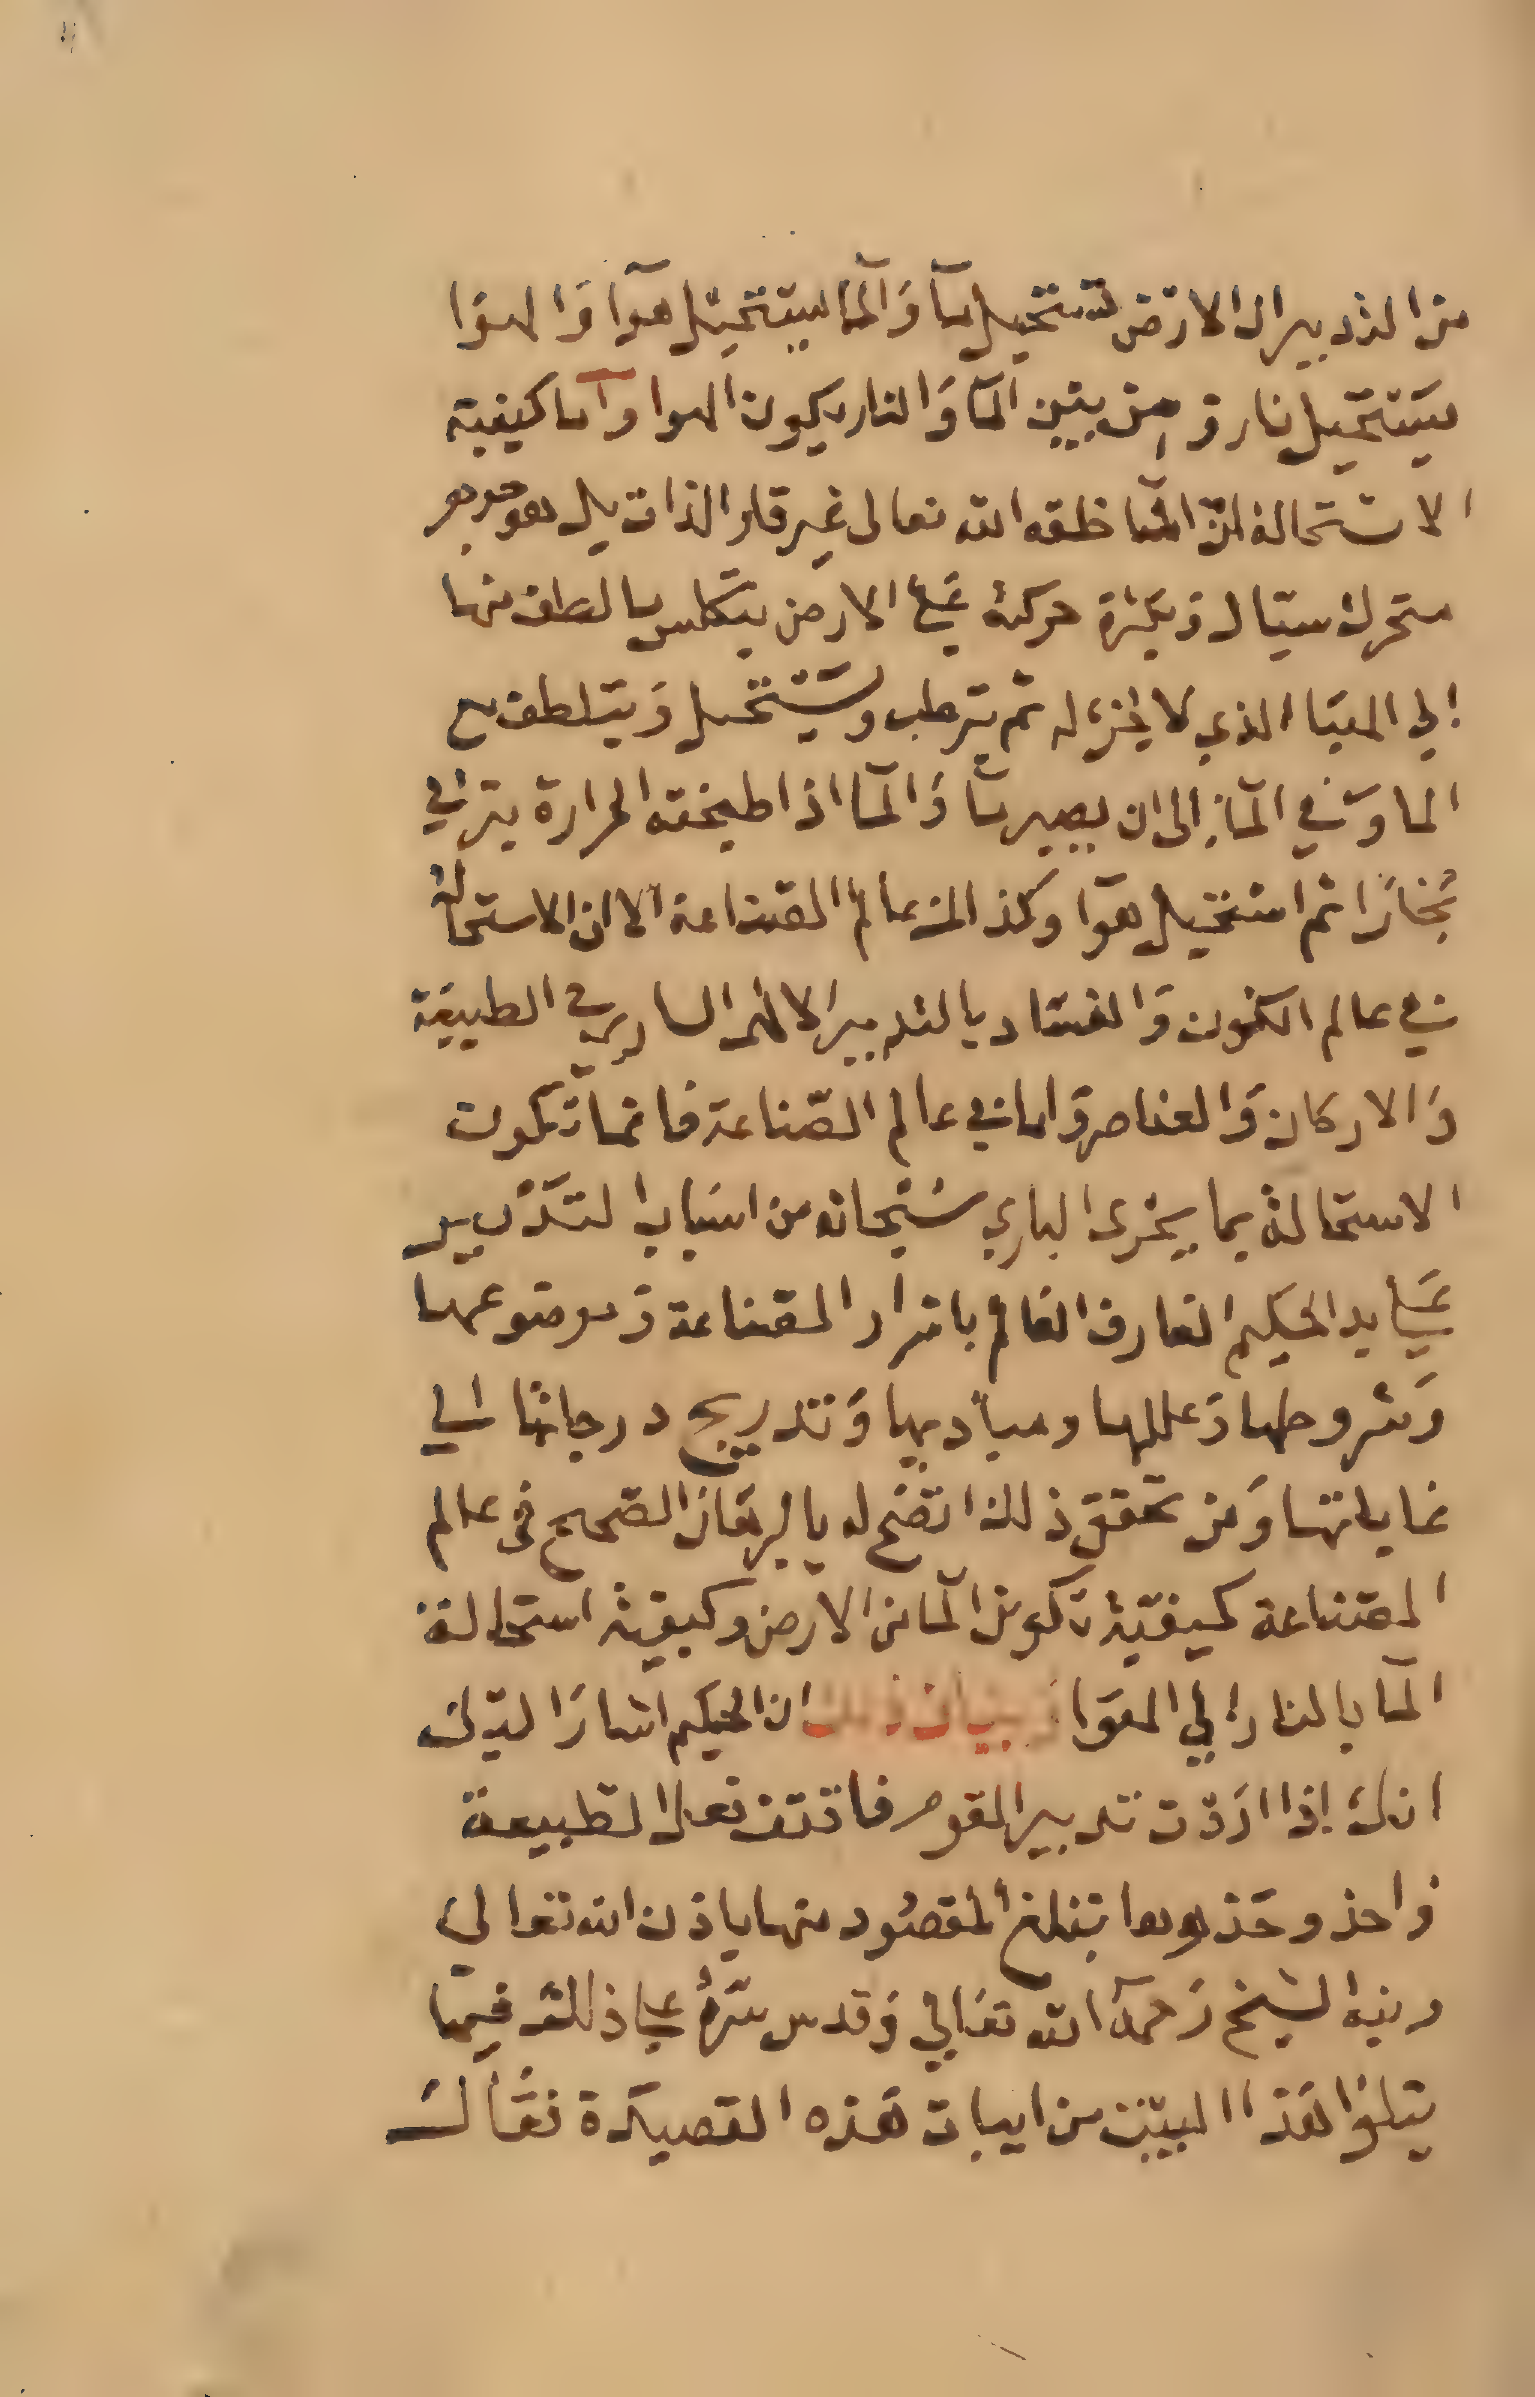 من التدبير ان الارض تستحيل مآ وَالمآ يستحيل هوآ وَالهوَا
يَستحيل نار وَمن بين المآ وَالنار يكون الهوا وآما كيفية
الاستحالة لانّ المآ خلقه الله تعالى غير قار الذات بل هو جوهر
متحرك سيّال وَبكثرة حركته عَلى الارض يتكلس ما لطف منها
إلى الهبَا الذي لا يجزء له ثم يترطب وَيَستحيل وَيتلطف مع
الما وَفي المآء الى ان يصير مآ وَالمآ اذا طبخته الحرارة يترقي
بُخارًا ثم استحيل هوَآ وكذالك عالم الصّناعة الا ان الاستحالة
في عالم الكون وَالفسَاد بالتدبير الالهى الساري في الطبيعَة
وَالاركان وَالعناصر وَاما في عالم الصّناعة فانما تكون
الاستحالة بما يجرى الباري سُبْحانه من اسبَاب التدَبير
عَلي يد الحكيم العَارف العَالم باسْرار الصّناعة وَموضوعها
وَشروطها وَعللها ومبادِيها وَتدريج درجاتها الي
غاياتها وَمن تحقق ذلك اتضَح له بالبرهَان الصّحيح فى عالم
الصّناعة كيفيّة تكوين المآ من الارض وكيفية استحالة
المآ بالنار إلي الهوَا وَبيَان ذلك ان الحكيم اشارَ اليك
انك إذا اردْت تدبير القوم فاقتف فعل الطبيعة
وَاحذ وحَذوها تبلغ المقصُود منها باذن الله تعالي
ونبه الشيخ رَحمهُ الله تعَالي وَقدس سرّهُ علي ذالك فيمَا
يتلوْا هَذا البيْت من ابيات هَذه القصيدَة فقَال